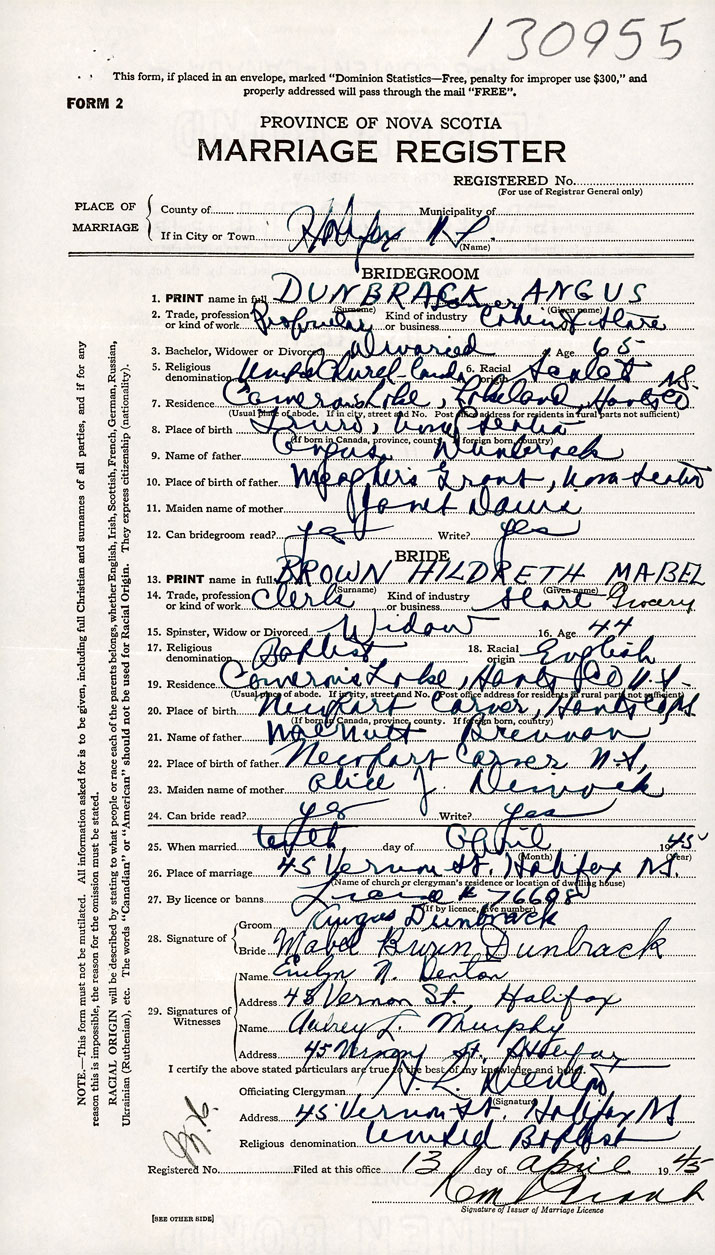 130955
This form, if placed in an envelope, marked "Dominion Statistics—Free, penalty for improper use $300," and
properly addressed will pass through the mail "FREE".
FORM 2
PROVINCE OF NOVA SCOTIA
MARRIAGE REGISTER
REGISTERED No.
(For use of Registrar General only)
PLACE OF MARRIAGE
County of Municipality of
If in City or Town Halifax N.S.
(Name)
BRIDEGROOM
1. PRINT name in full DUNBRACK ANGUS
(Surname) (Given name)
2. Trade, profession or kind of work Kind of industry or business Store
3. Bachelor, Widower or Divorced Divorced 4. Age 65
5. Religious denomination 6. Racial origin
7. Residence Cameron's Lake, Lakeland, Hants Co N.S.
(Usual place of abode. If in city, street and No. Post office address for residents in rural parts not sufficient)
8. Place of birth Truro, Nova Scotia
(If born in Canada, province, county. If foreign born, country)
9. Name of father Angus Dunbrack
10. Place of birth of father Meagher's Grant, Nova Scotia
11. Maiden name of mother Janet
12. Can bridegroom read? yes Write? yes
BRIDE
13. PRINT name in full BROWN HILDRETH MABEL
(Surname) (Given name)
14. Trade, profession or kind of work Clerk Kind of industry or business Store Grocery
15. Spinster, Widow or Divorced Widow 16. Age 44
17. Religious denomination Baptist 18. Racial origin English
19. Residence Cameron's Lake, Hants Co N.S.
(Usual place of abode. If in city, street and No. Post office address for residents in rural parts not sufficient)
20. Place of birth Newport Corner, Hants Co N.S.
(If born in Canada, province, county. If foreign born, country)
21. Name of father Brennan
22. Place of birth of father Newport Corner N.S.
23. Maiden name of mother Alice J. Dimock
24. Can bride read? yes Write? yes
25. When married tenth day of April 1945
(Month) (Year)
26. Place of marriage 45 Vernon St. Halifax N.S.
(Name of church or clergyman's residence or location of dwelling house)
27. By licence or banns License # 76698
(If by licence, give number)
28. Signature of
Groom Angus Dunbrack
Bride Mabel Dunbrack
29. Signatures of Witnesses
Name Evelyn N. Denton
Address 45 Vernon St., Halifax
Name Aubrey L. Murphy
Address 45 Vernon St., Halifax
I certify the above stated particulars are true to the best of my knowledge and belief.
Officiating Clergyman H. L. Denton
(Signature)
Address 45 Vernon St. Halifax N.S.
Religious denomination United Baptist
Registered No. Filed at this office 13 day of April 1945
Signature of Issuer of Marriage Licence
[SEE OTHER SIDE]
NOTE.—This form must not be mutilated. All information asked for is to be given, including full Christian and surnames of all parties, and if for any
reason this is impossible, the reason for the omission must be stated.
RACIAL ORIGIN will be described by stating to what people or race each of the parents belongs, whether English, Irish, Scottish, French, German, Russian,
Ukrainian (Ruthenian), etc. The words "Canadian" or "American" should not be used for Racial Origin. They express citizenship (nationality).